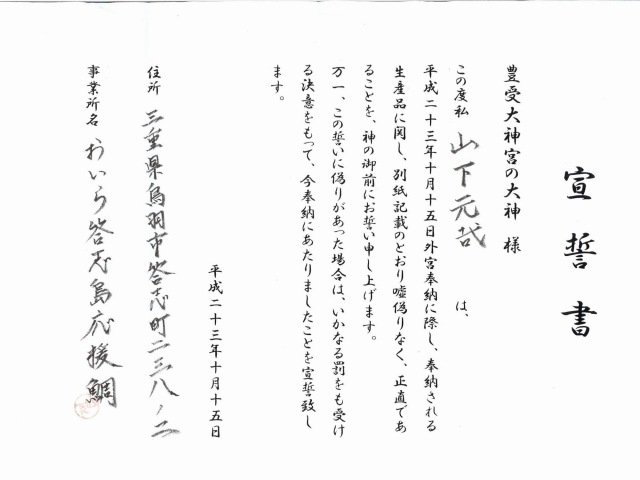 宣誓書
豊受大神宮の大神 様
この度私 山下元哉 は、
平成二十三年十月十五日外宮奉納に際し、奉納される
生産品に関し、別紙記載のとおり嘘偽りなく、正直であ
ることを、神の御前にお誓い申し上げます。
万一、この誓いに偽りがあった場合は、いかなる罰をも受け
る決意をもって、今奉納にあたりましたことを宣誓致し
ます。
平成二十三年十月十五日
住所 三重県鳥羽市答志町二三八ノ二
事業所名 おいら答志島応援鯛